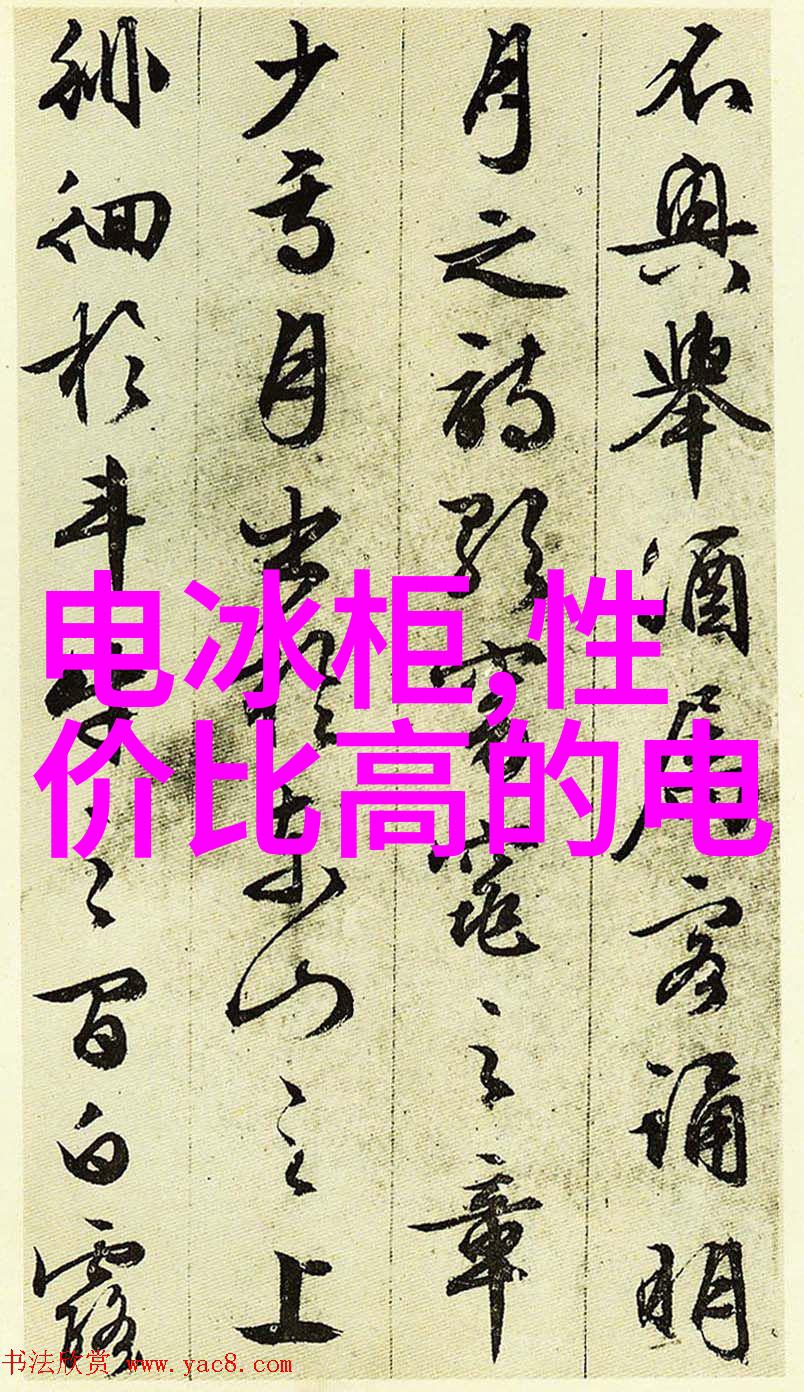 不興舉酒屬客誦明
月之詩歌窈窕之章
少焉月出於東山之上
徘徊於斗牛之間白露
电冰柜,性
价比高的电
书法欣赏 www.yac8.com